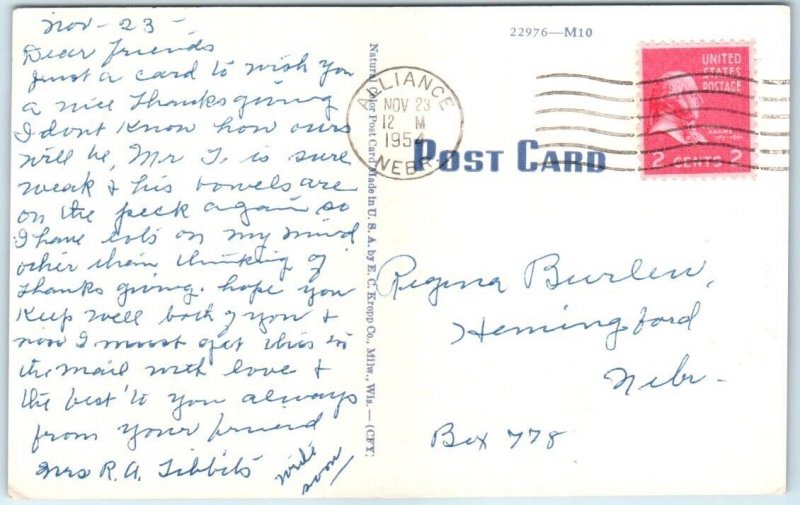 Nov - 23 -
Dear friends
Just a card to wish you
a nice Thanksgiving
I dont know how ours
will be, Mr T. is sure
weak & his bowels are
on the peck again so
I have lots on my mind
other then thinking of
Thanks giving. hope you
Keep well both of you &
now I must get this in
the mail with love &
the best to you always
from your friend
Mrs R.A. Tibbits
write
soon
Natural Color Post Card Made in U. S. A. by E. C. Kropp Co., Milw., Wis.—(CFY)
22976—M10
ALLIANCE
NOV 23
12 M
1954
NEBR.
POST CARD
UNITED
STATES
POSTAGE
2 CENTS 2
Regina Burlew,
Hemingford
Nebr.
Box 778